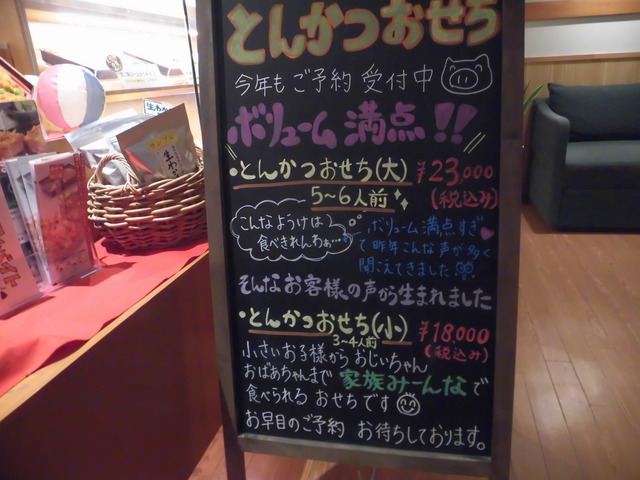 とんかつおせち
今年もご予約 受付中
ボリューム満点!!
・とんかつおせち(大) ¥23,000
5～6人前
(税込み)
こんなようけは
食べきれんわぁ…
ボリューム満点すぎ
て昨年こんな声が多く
聞こえてきました
そんなお客様の声から生まれました
・とんかつおせち(小) ¥18,000
3～4人前
(税込み)
小さいお子様から おじいちゃん
おばあちゃんまで 家族みーんなで
食べられる おせちです
お早目のご予約 お待ちしております。
サンプル
生わ